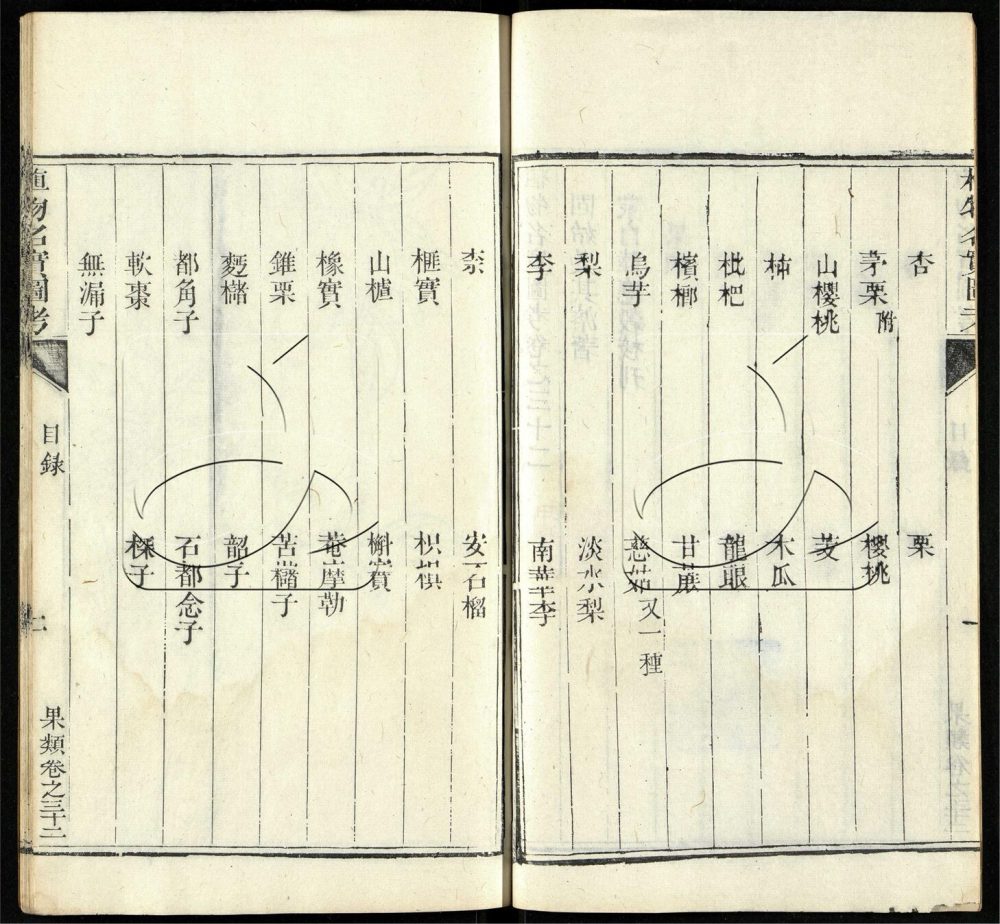 杏 栗
茅栗附 櫻桃
山櫻桃 芰
柿 木瓜
枇杷 龍眼
檳榔 甘蔗
烏芋 慈姑又一種
梨 淡水梨
李 南華李
柰 安石榴
榧實 枳椇
山樝 槲實
橡實 菴摩勒
錐栗 苦櫧子
麪櫧 韶子
都角子 石都念子
軟棗 㮏子
無漏子
植物名實圖考 目錄 二 果類卷之三十二